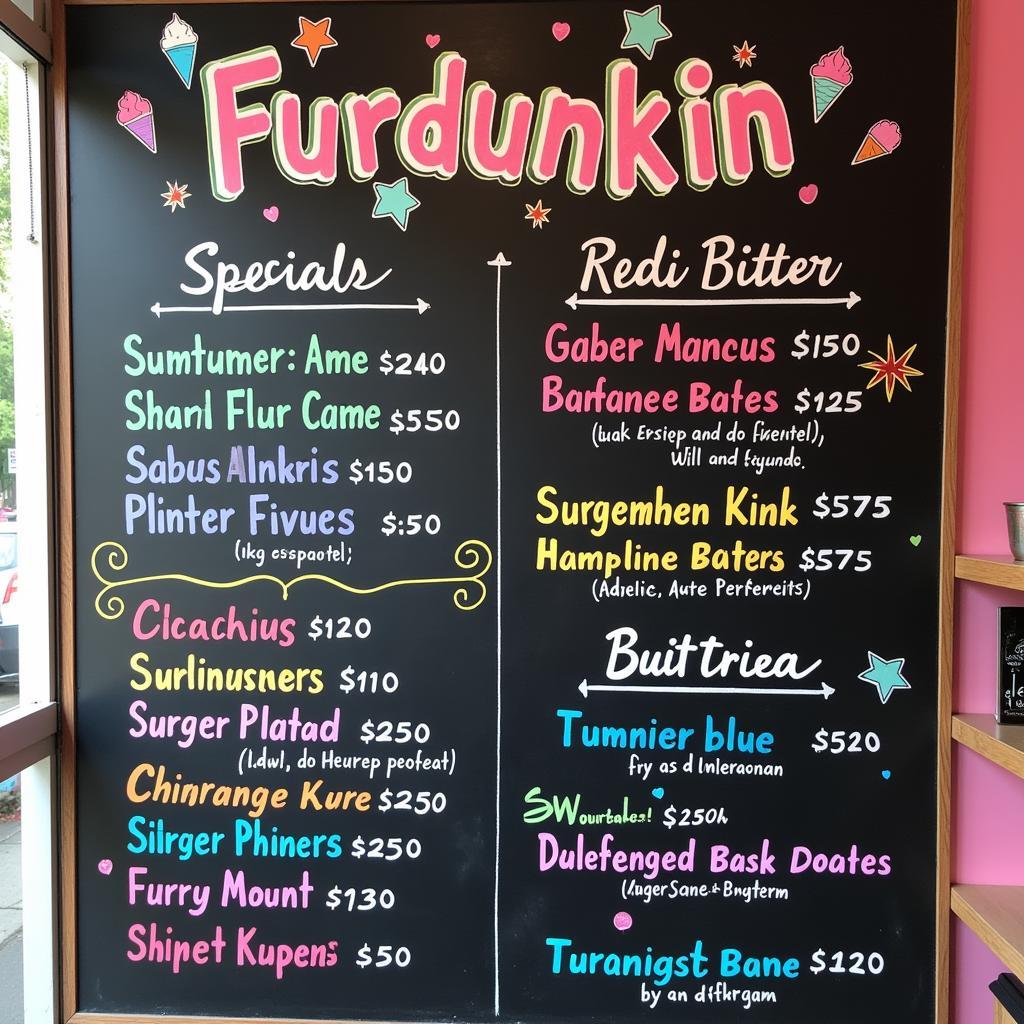 Furdunkin
Specials
Sumtumer: Ame $240
Shanl Flur Came $550
Sabus Alnkris $150
Plinter Fivues $:50
(ıkg csspaotel;
Clcachius $120
Surlinusners $110
Surger Platad $250
(l.dwl, do Heurep peofeat)
Chinrange Kure $250
Silrger Phiners $250
Furry Mount $130
Shipet Kupens $50
Redi Bitter
Gaber Mancus $150
Barfanee Bates $125
(luak Ersiep and do Fiventel),
Will and feyundo.
Surgemhen Kink $575
Hampline Baters $575
(Adielic, Aute Perfereits)
Buittriea
Tumnier blue $520
fry as d lnleraonan
SWourtales! $250h
Dulefenged Bask Doates
(AugerSane & Bngterm
Turanigst Bane $120
by an difkrgam